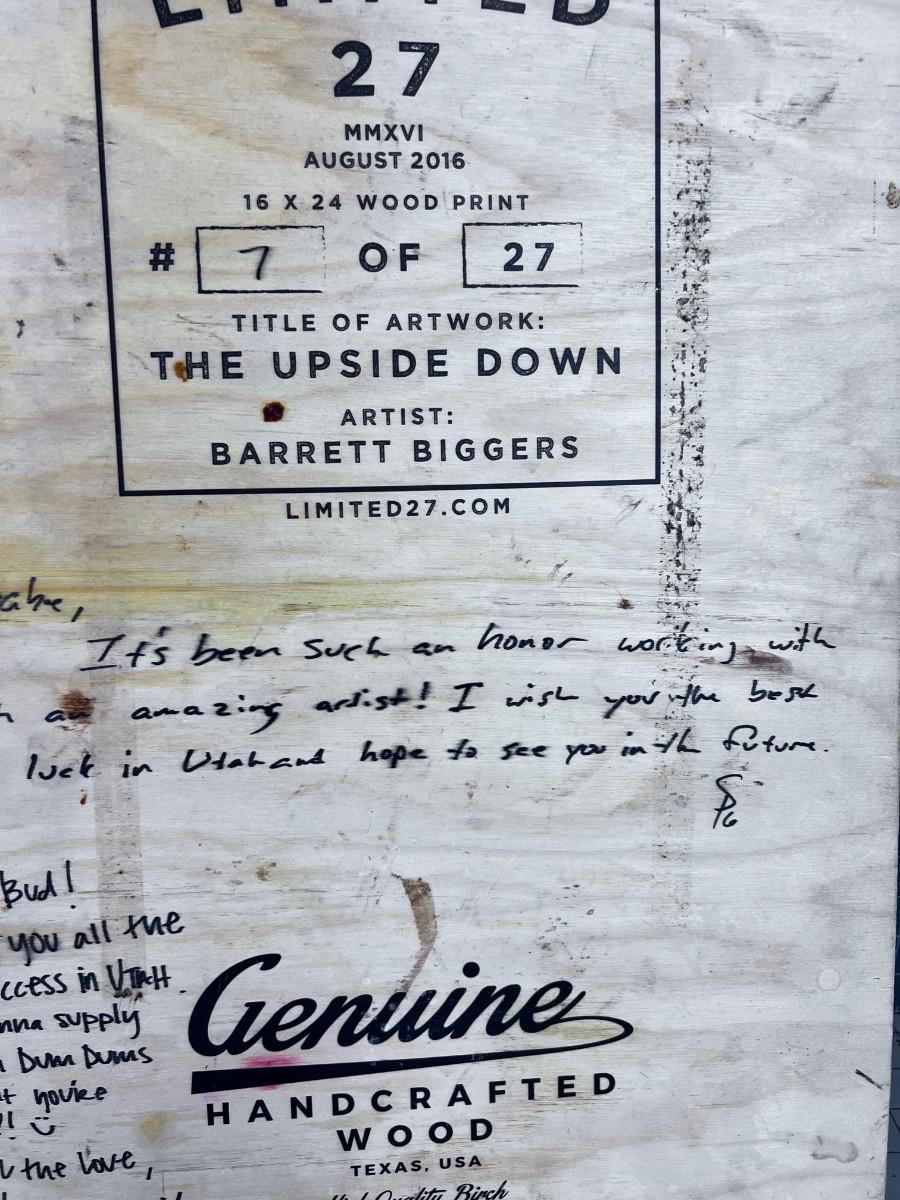 LIMITED
27
MMXVI
AUGUST 2016
16 X 24 WOOD PRINT
# 7 OF 27
TITLE OF ARTWORK:
THE UPSIDE DOWN
ARTIST:
BARRETT BIGGERS
LIMITED27.COM
It's been such an honor working with
an amazing artist! I wish you the best
luck in Utah and hope to see you in th future.
Bud!
you all the
ccess in UTAH.
nna supply
Dum Dums
you're
! :)
the love,
Genuine
HANDCRAFTED
WOOD
TEXAS, USA
Quality Birch